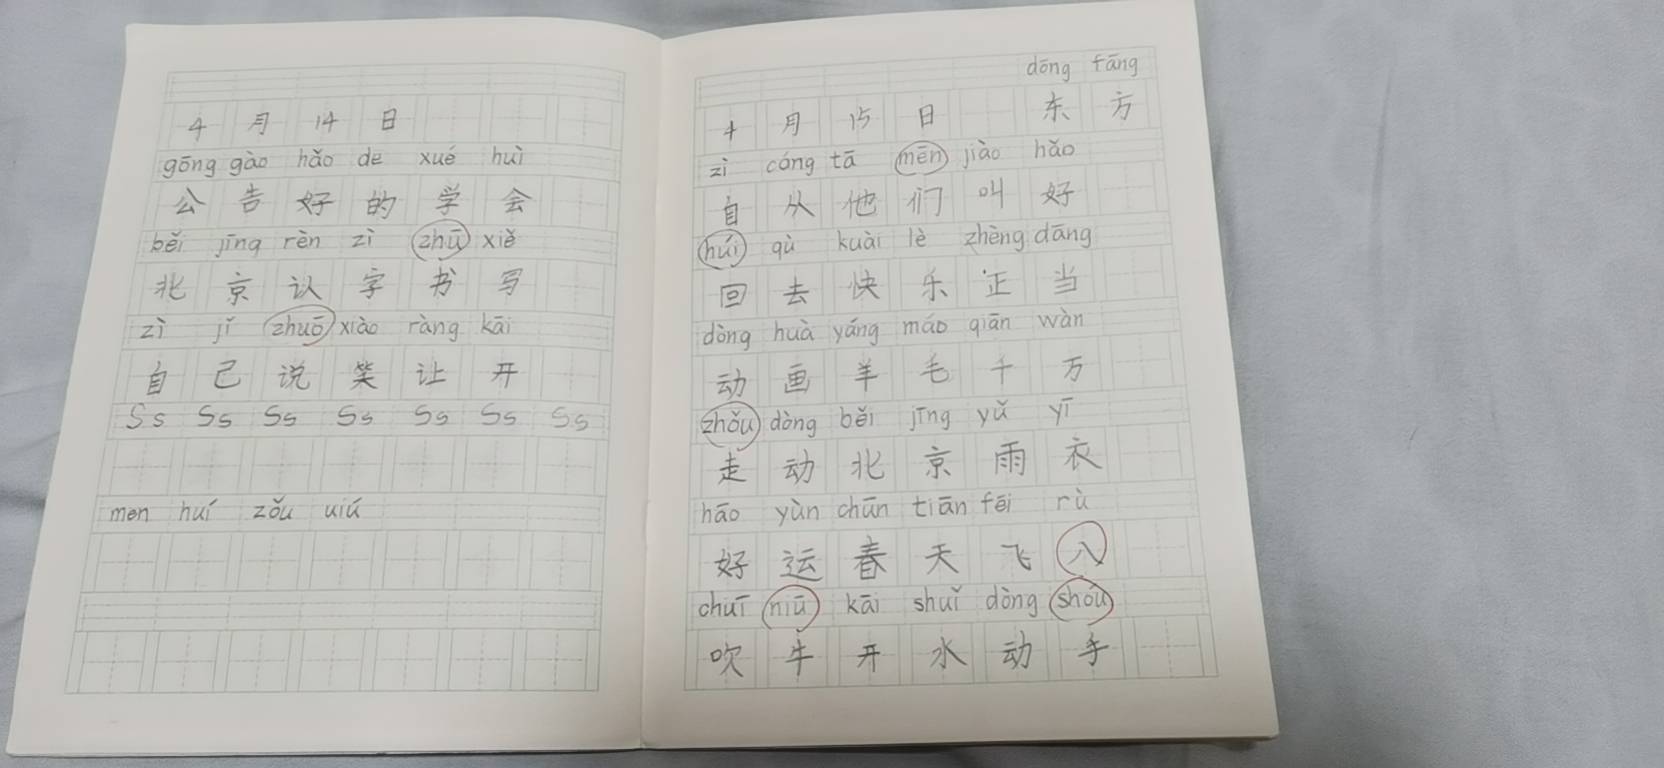 4 月 14 日
gōng gào hǎo de xué huì
公 告 好 的 学 会
běi jīng rèn zì zhū xiě
北 京 认 字 书 写
zì jǐ zhuō xiào ràng kāi
自 己 说 笑 让 开
Ss Ss Ss Ss Ss Ss Ss
men huí zǒu uiú
dōng fāng
4 月 15 日 东 方
zì cóng tā mēn jiào hǎo
自 从 他 们 叫 好
húi qù kuài lè zhèng dāng
回 去 快 乐 正 当
dòng huà yáng máo qiān wàn
动 画 羊 毛 千 万
zhǒu dòng běi jīng yǔ yī
走 动 北 京 雨 衣
hāo yùn chūn tiān fēi rù
好 运 春 天 飞 八
chuī niū kāi shuǐ dòng shóu
吹 牛 开 水 动 手